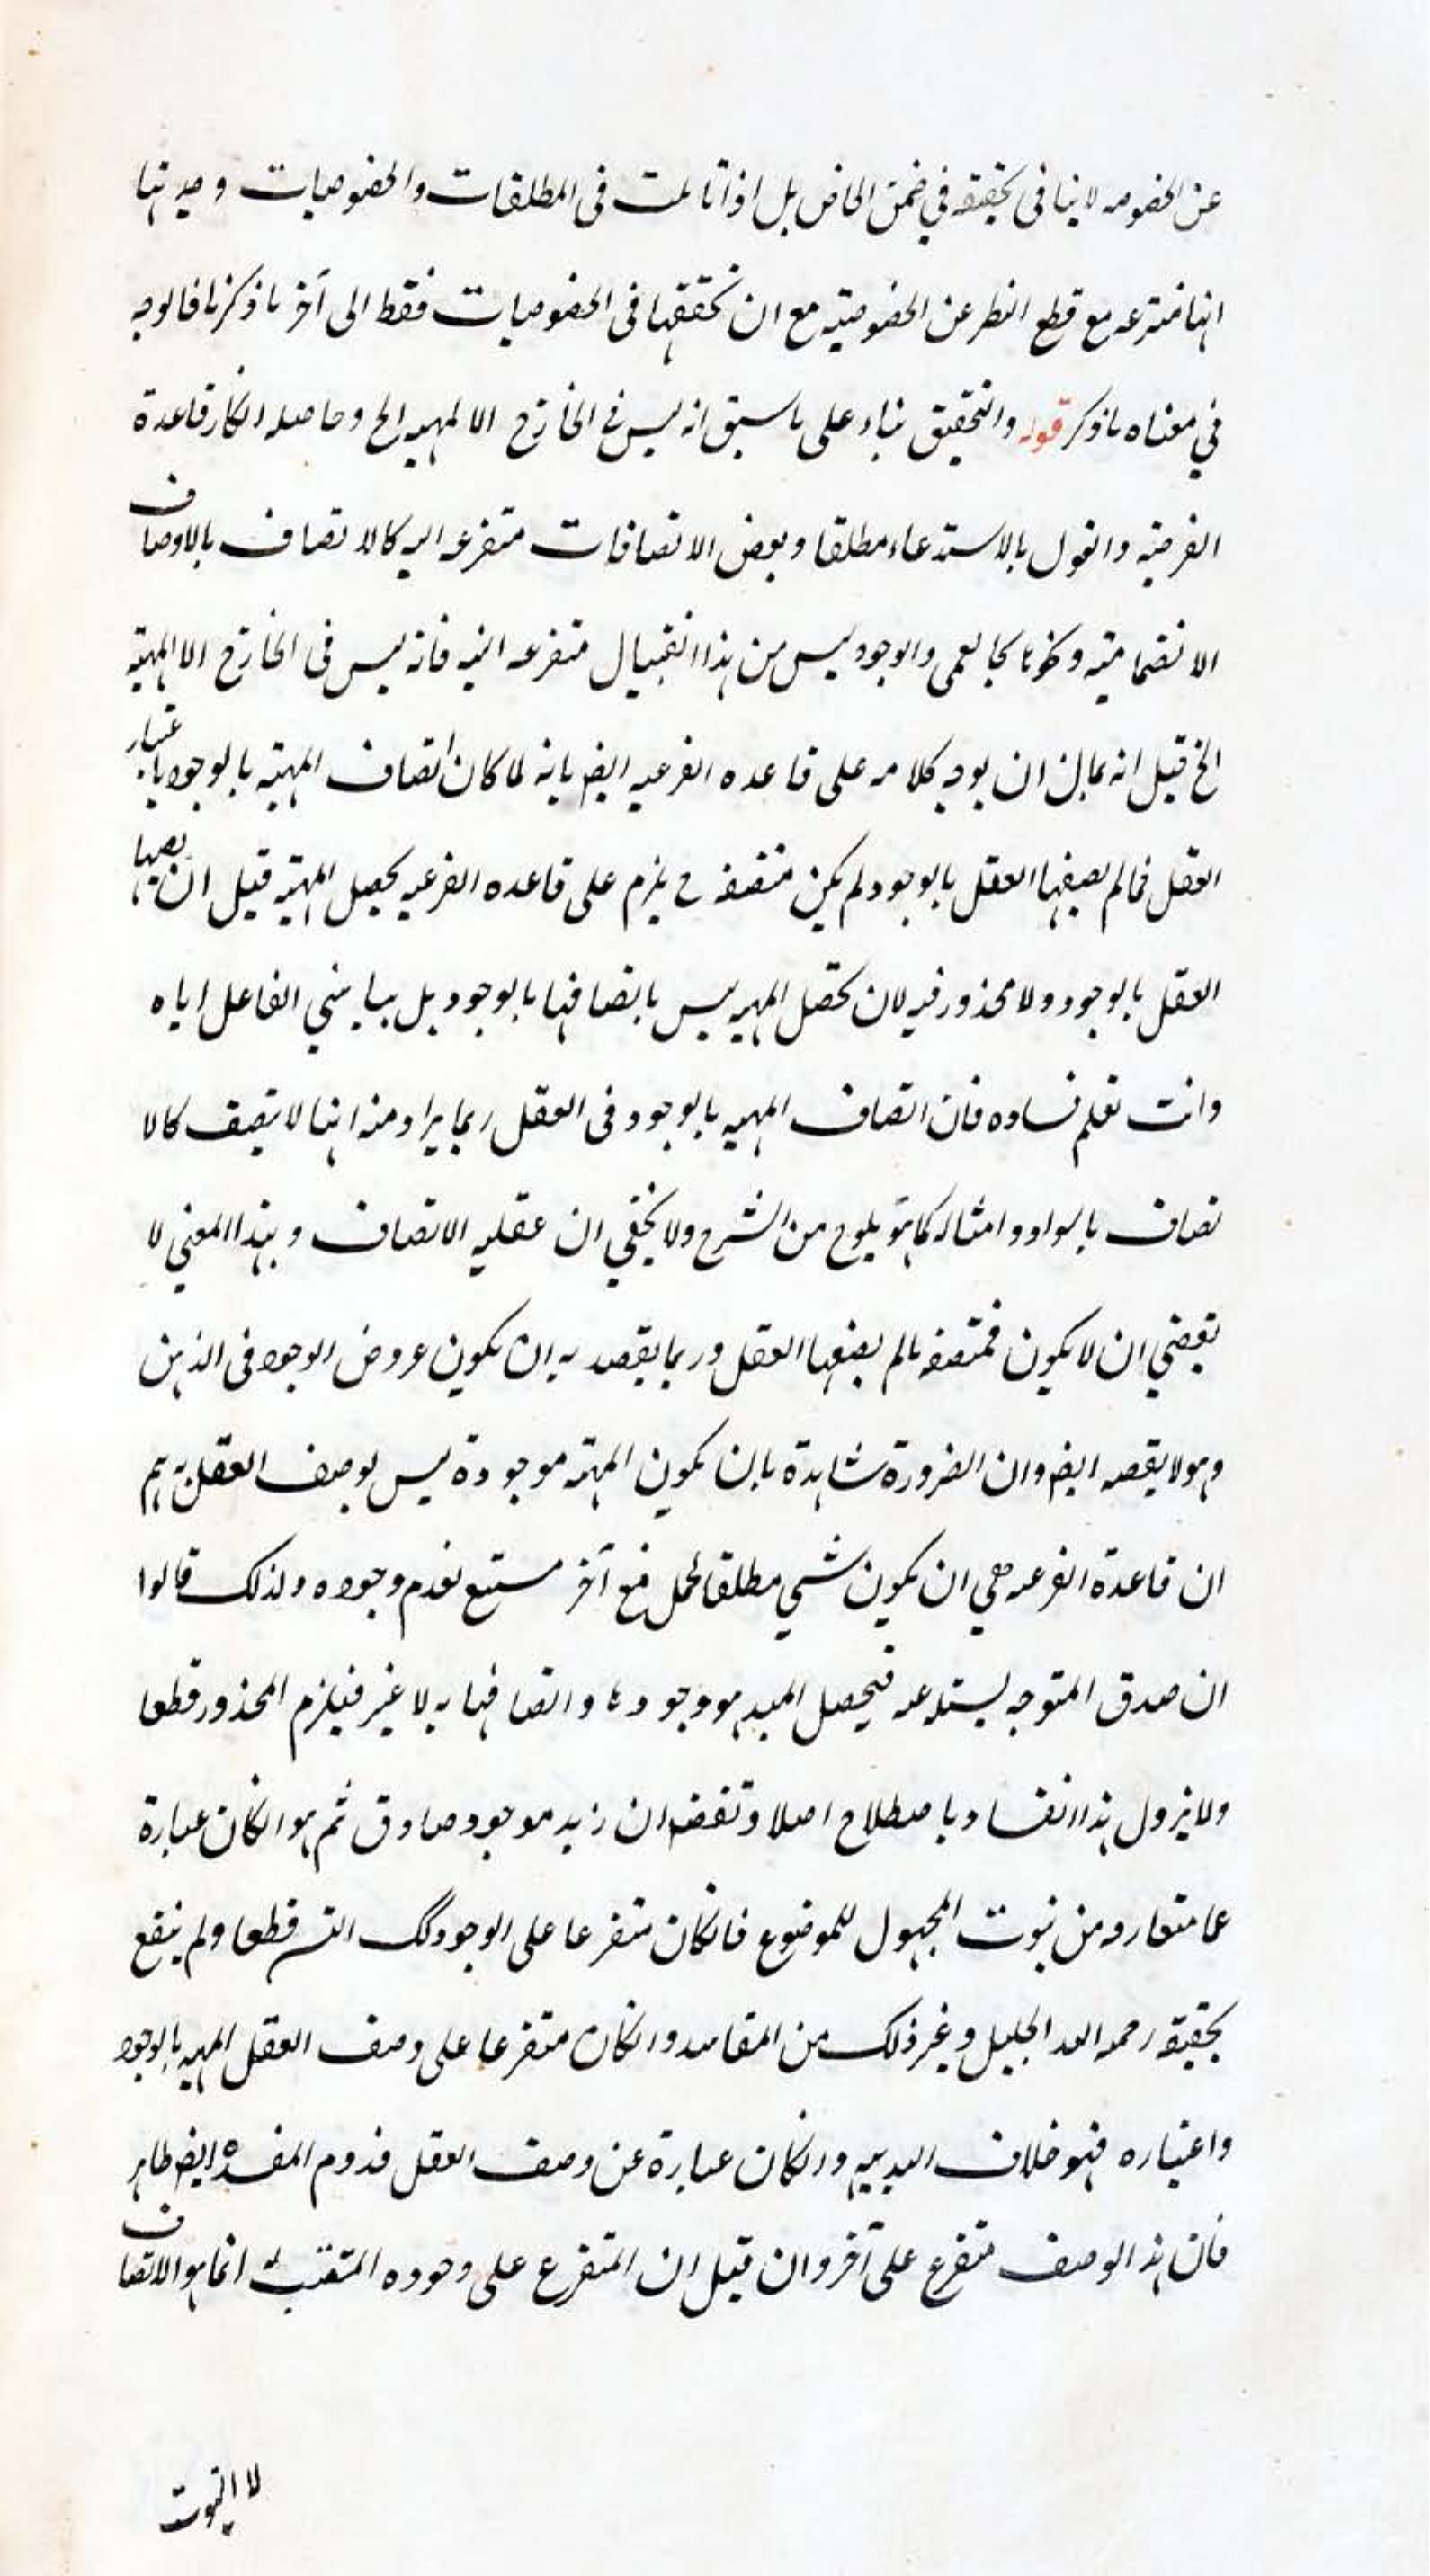 عن الخصوصه لا ينافى تحققه في ضمن الخاص بل اذا تاملت فى المطلقات والخصوصيات وجدتها
انها منتزعه مع قطع النظر عن الخصوصية مع ان تحققها فى الخصوصيات فقط الى آخر ما ذكرنا فالوجه
في معناه ما ذكر قوله والتحقيق بناء على ما سبق انه ليس في الخارج الا المهيه الخ وحاصله انكار قاعدة
الفرعية والقول بالاستدعاء مطلقا وبعض الاتصافات متفرعه اليه كالاتصاف بالاوصاف
الانضمامية ونحوها كالعمى والوجود ليس من هذا القبيل متفرعه اليه فانه ليس فى الخارج الا المهية
الخ قيل انه يمكن ان يوجه كلامه على قاعده الفرعيه ايضا بانه لما كان اتصاف المهية بالوجود باعتبار
العقل فما لم يصفها العقل بالوجود لم يكن متصفه ح يلزم على قاعده الفرعيه تحصل المهية قبل ان يصفها
العقل بالوجود ولا محذور فيه لان تحصل المهيه ليس باتصافها بالوجود بل الفاعل اياه
وانت تعلم فساده فان اتصاف المهيه بالوجود فى العقل ربما يراد منه انها لا تتصف كالا
تصاف بالسواد وامثاله كما هو يلوح من الشرح ولا يخفي ان عقليه الاتصاف وبهذا المعني لا
تقتضي ان لا يكون متصفه ما لم يصفها العقل وربما يقصد به ان يكون عروض الوجود فى الذهن
وهو لا يقصد ايضا وان الضرورة شاهدة بان يكون المهية موجودة ليس بوصف العقل به ثم
ان قاعدة الفرعيه هي ان يكون شي مطلقا آخر تقدم وجوده ولذلك قالوا
ان صدق يستدعه واتصافها به لا غير فيلزم المحذور قطعا
ولا يزول هذا الفساد باصطلاح اصلا ان زيد موجود صادق ثم هو انكان عبارة
عما من ثبوت المحمول للموضوع فانكان متفرعا على الوجود قطعا ولم ينفع
تحقيقه رحمه الله الجليل وغير ذلك من المفاسد وانكان متفرعا على وصف العقل المهيه بالوجود
واعتباره فهو خلاف البديهيه وانكان عبارة عن وصف العقل المفسدة ايضا ظاهر
فان هذا الوصف متفرع على آخر وان قيل ان المتفرع على وجوده المثبت انما هو الاتصاف
لا الثبوت